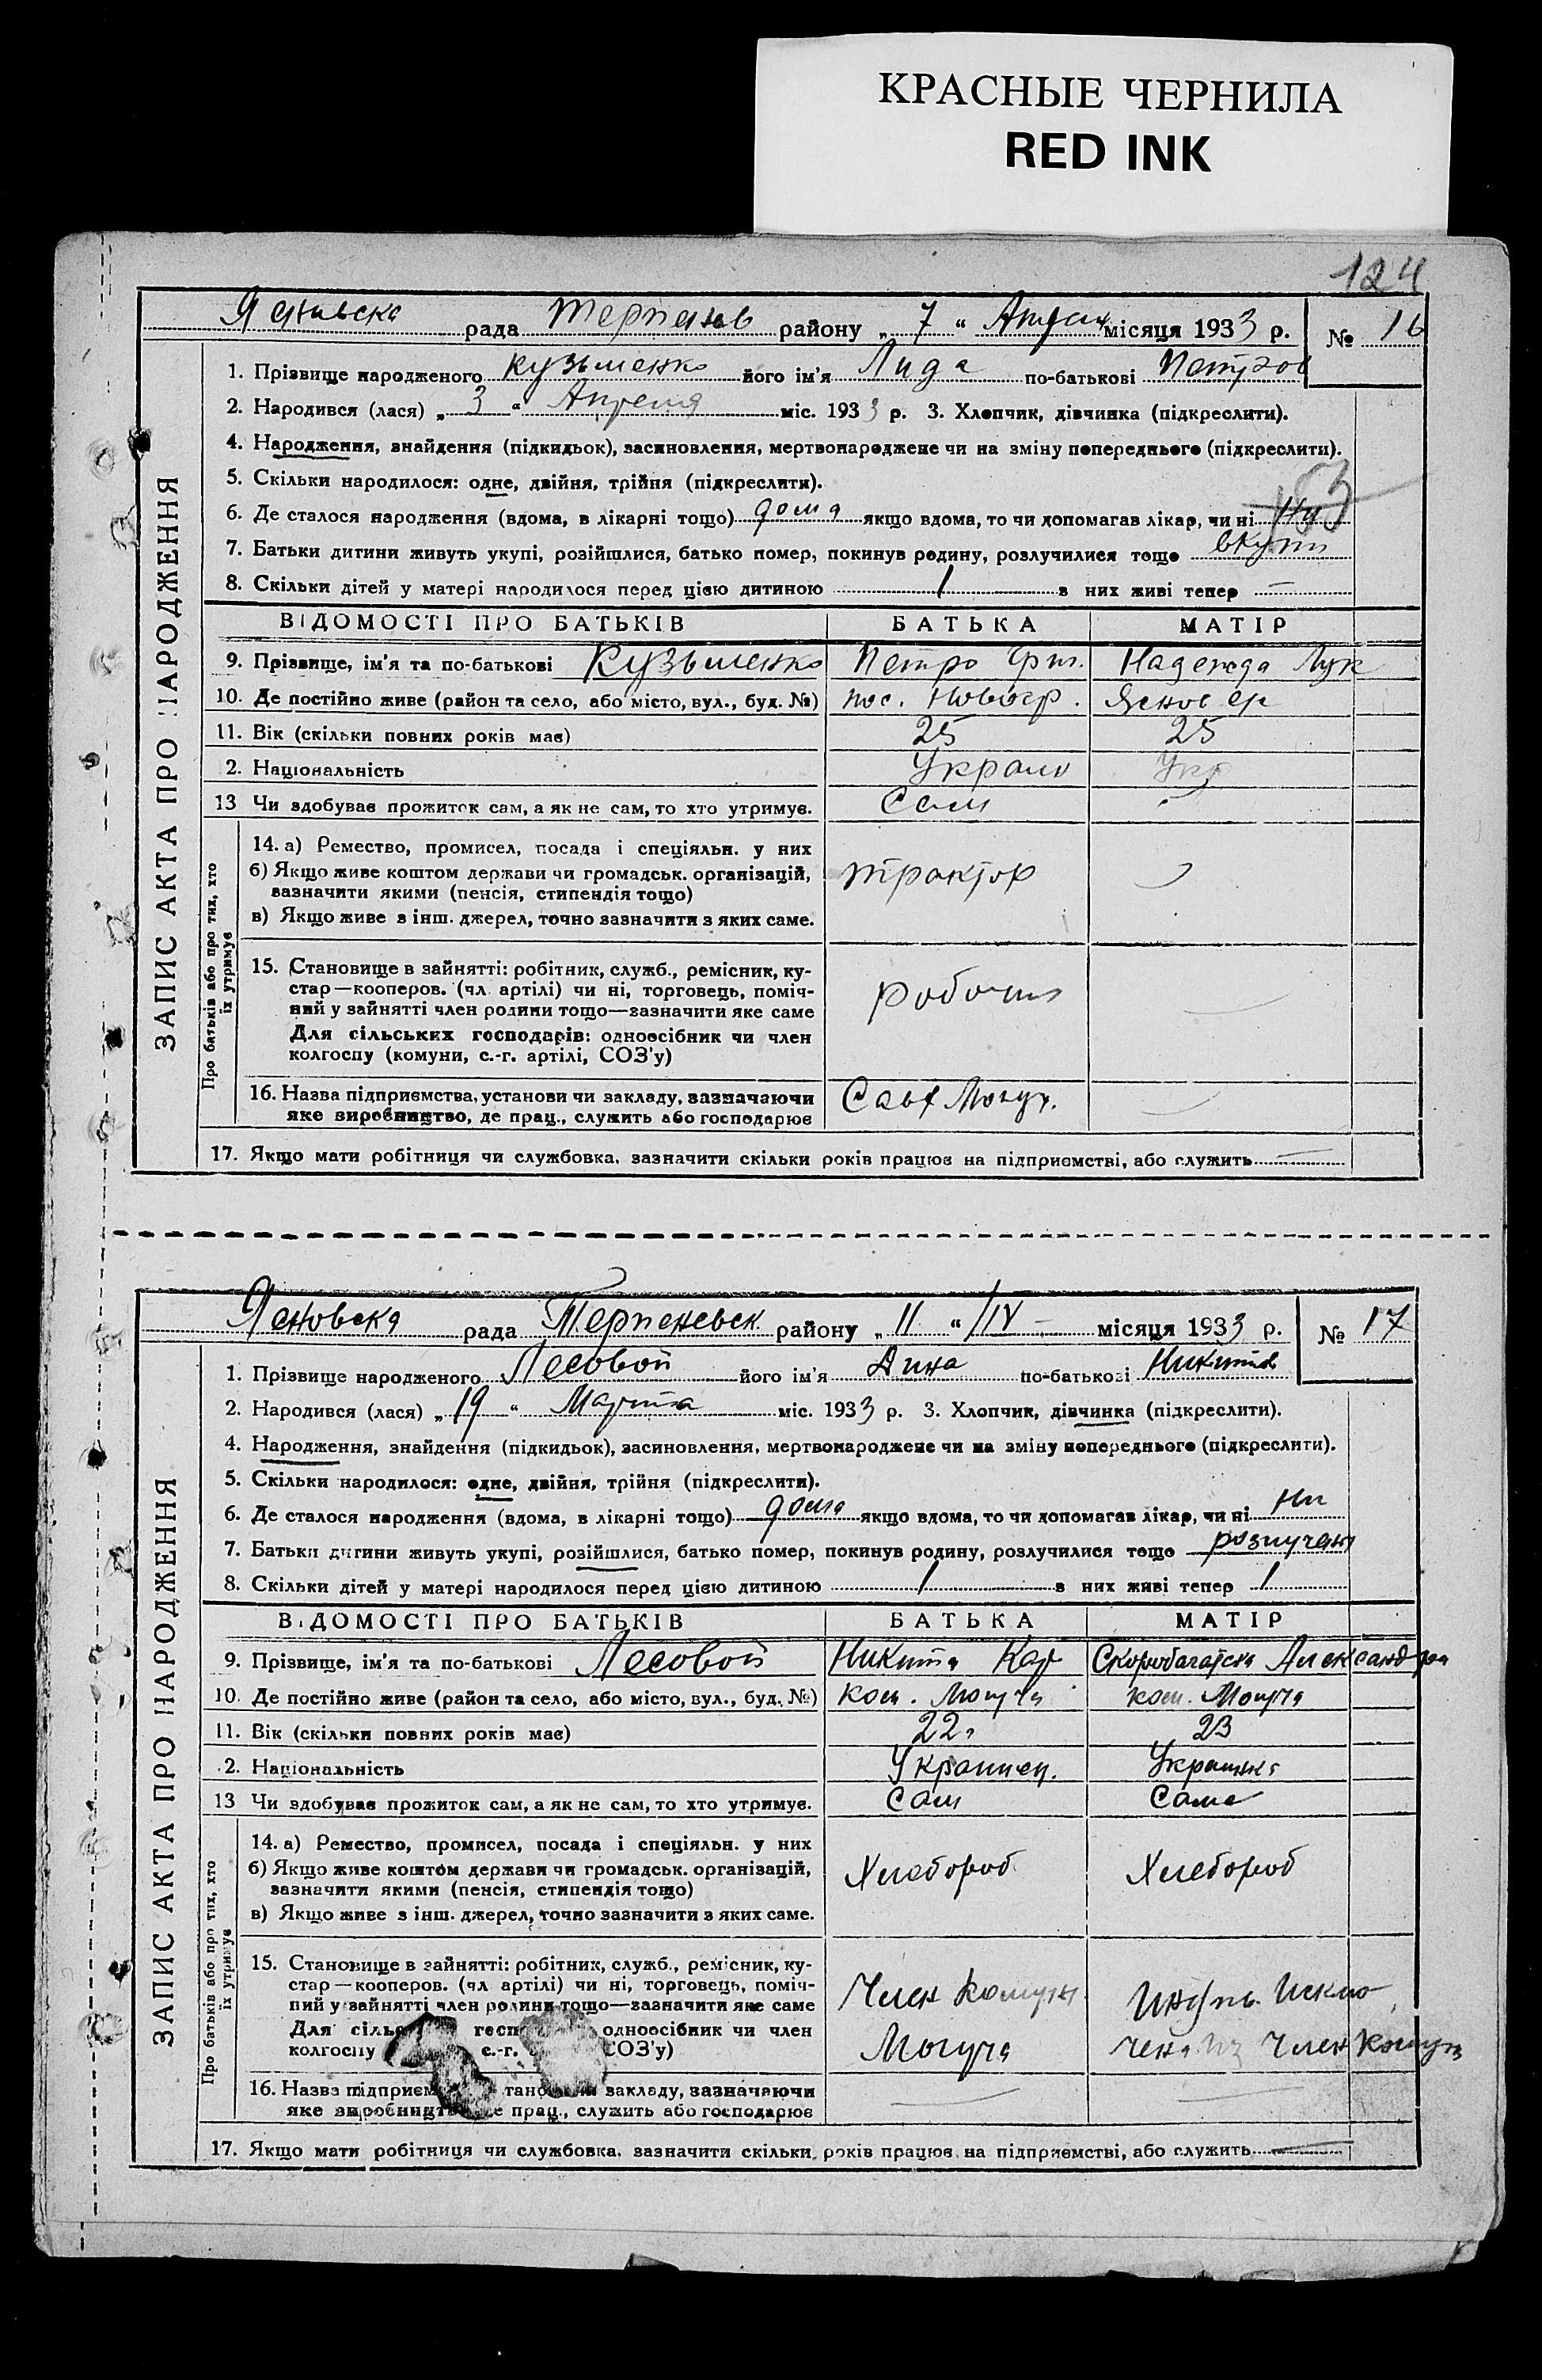 КРАСНЫЕ ЧЕРНИЛА
RED INK
124
рада район у „ 7 “ місяця 1933 р. № 16
1. Прізвище народженого Кузьменко його ім'я Лида по-батькові Петров
2. Народився (лася) „ 3 “ Апреля міс. 1933 р. 3. Хлопчик, дівчинка (підкреслити).
4. Народження, знайдення (підкидьок), засиновлення, мертвонароджене чи на зміну попереднього (підкреслити).
5. Скільки народилося: одне, двійня, трійня (підкреслити).
153
6. Де сталося народження (вдома, в лікарні тощо) дома якщо вдома, то чи допомагав лікар, чи ні Ни
7. Батьки дитини живуть укупі, розійшлися, батько помер, покинув родину, розлучилися тощо вкупи
8. Скільки дітей у матері народилося перед цією дитиною 1 в них живі тепер —
ЗАПИС АКТА ПРО НАРОДЖЕННЯ
ВІДОМОСТІ ПРО БАТЬКІВ БАТЬКА МАТІР
9. Прізвище, ім'я та по-батькові Кузьменко Петро Надежда Лук
10. Де постійно живе (район та село, або місто, вул., буд. №) пос.
11. Вік (скільки повних років має) 25 25
2. Національність Укр
13 Чи здобуває прожиток сам, а як не сам, то хто утримує. Сам
Про батьків або про тих, хто їх утримує
14. а) Ремество, промисел, посада і спеціяльн. у них
б) Якщо живе коштом держави чи громадськ. організацій, трактор
зазначити якими (пенсія, стипендія тощо)
в) Якщо живе з інш. джерел, точно зазначити з яких саме.
15. Становище в зайнятті: робітник, служб., ремісник, ку-
стар—кооперов. (чл. артілі) чи ні, торговець, поміч- робочий
ний у зайнятті член родини тощо—зазначити яке саме
Для сільських господарів: одноосібник чи член
колгоспу (комуни, с.-г. артілі, СОЗ'у)
16. Назва підприємства, установи чи закладу, зазначаючи
яке виробництво, де прац., служить або господарює
17. Якщо мати робітниця чи службовка, зазначити скільки років працює на підприємстві, або служить —
Яновска рада Терпеневск району „ 11 “ /IV — місяця 1933 р. № 17
1. Прізвище народженого Лесовой його ім'я Дина по-батькові Никитов
2. Народився (лася) „ 19 “ Марта міс. 1933 р. 3. Хлопчик, дівчинка (підкреслити).
4. Народження, знайдення (підкидьок), засиновлення, мертвонароджене чи на зміну попереднього (підкреслити).
5. Скільки народилося: одне, двійня, трійня (підкреслити).
6. Де сталося народження (вдома, в лікарні тощо) дома якщо вдома, то чи допомагав лікар, чи ні Ни
7. Батьки дитини живуть укупі, розійшлися, батько помер, покинув родину, розлучилися тощо
8. Скільки дітей у матері народилося перед цією дитиною 1 в них живі тепер 1
ЗАПИС АКТА ПРО НАРОДЖЕННЯ
ВІДОМОСТІ ПРО БАТЬКІВ БАТЬКА МАТІР
9. Прізвище, ім'я та по-батькові Лесовой Никита Кар
10. Де постійно живе (район та село, або місто, вул., буд. №) ком. Могуча ком. Могуча
11. Вік (скільки повних років має) 22 23
2. Національність
13 Чи здобуває прожиток сам, а як не сам, то хто утримує. Сам Сама
Про батьків або про тих, хто їх утримує
14. а) Ремество, промисел, посада і спеціяльн. у них
б) Якщо живе коштом держави чи громадськ. організацій, Хлебороб Хлебороб
зазначити якими (пенсія, стипендія тощо)
в) Якщо живе з інш. джерел, точно зазначити з яких саме.
15. Становище в зайнятті: робітник, служб., ремісник, ку-
стар—кооперов. (чл. артілі) чи ні, торговець, поміч- Член Комуни
ний у зайнятті член родини тощо—зазначити яке саме
Для одноосібник чи член Могуча
колгоспу с.-г. СОЗ'у)
16. Назва закладу, зазначаючи
прац., служить або господарює
17. Якщо мати робітниця чи службовка, зазначити скільки років працює на підприємстві, або служить —